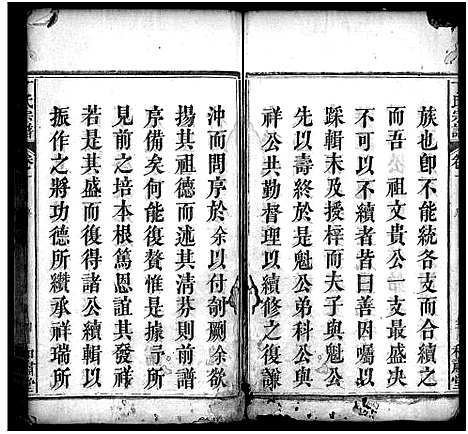 族也卽不能統各支而合修
而吾 祖文貴公一支最盛决
不可以不續者昔曰善因囑以
踩輯未及授梓而夫子與魁公
先以壽終於是魁公弟科公與
祥公共勤督理以續修之復謙
沖而問序於余以付剞劂余欲
揚其祖德而述其清芬則前譜
序備矣何能復贅惟是據予所
見前之培本根篤恩誼其發祥
若是其盛而復得諸公續輯以
振作之將功德所纘承祥瑞所
氏宗譜